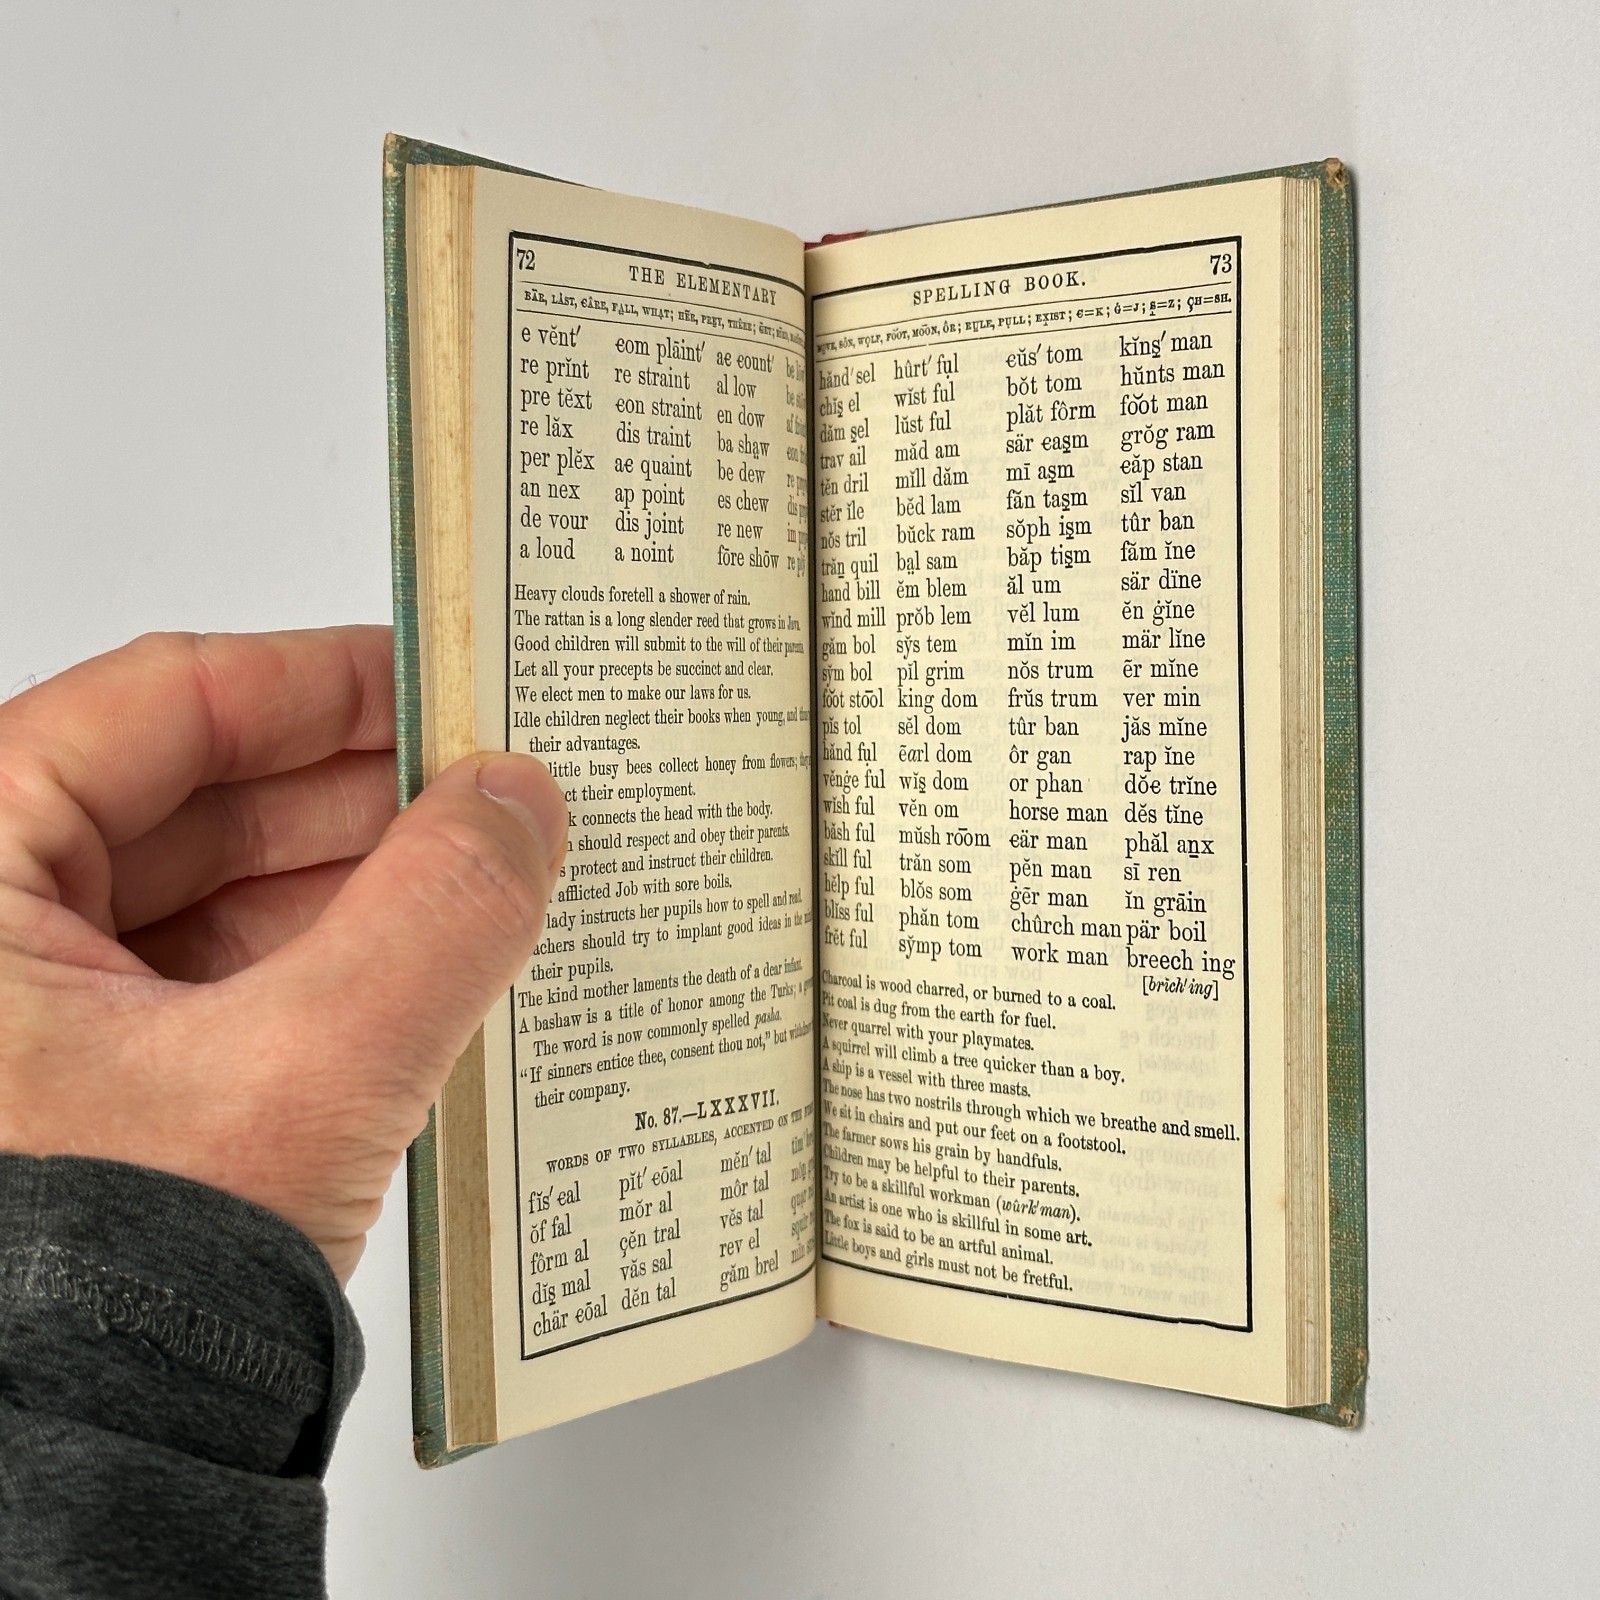 72
THE ELEMENTARY
BÄR, LÅST, €ÂRE, FALL, WHAT; HẼR, PREY, THÊRE; ĞET;
e vĕnt′ €om plāint′ a€ €ount′
re prĭnt re straint al low
pre tĕxt €on straint en dow
re lăx dis traint ba shaw
per plĕx a€ quaint be dew
an nex ap point es chew
de vour dis joint re new
a loud a noint fōre shōw
Heavy clouds foretell a shower of rain.
The rattan is a long slender reed that grows in Java.
Good children will submit to the will of their parents.
Let all your precepts be succinct and clear.
We elect men to make our laws for us.
Idle children neglect their books when young, and
their advantages.
little busy bees collect honey from flowers;
their employment.
connects the head with the body.
should respect and obey their parents.
protect and instruct their children.
afflicted Job with sore boils.
lady instructs her pupils how to spell and read.
should try to implant good ideas in the
their pupils.
The kind mother laments the death of a dear infant.
A bashaw is a title of honor among the Turks; a
The word is now commonly spelled pasha.
“If sinners entice thee, consent thou not,” but
their company.
No. 87.—LXXXVII.
WORDS OF TWO SYLLABLES, ACCENTED ON THE
fĭs′ €al pĭt′ €ōal mĕn′ tal
ŏf fal mŏr al môr tal
fôrm al çĕn tral vĕs tal
dĭs̱ mal văs sal rev el
chär €ōal dĕn tal găm brel
SPELLING BOOK.
73
MOVE, SÓN, WOLF, FŎŎT, MŌŌN, ÔR; RULE, PULL; EX̱IST; €=K; Ġ=J; S̱=Z; ÇH=SH.
hănd′ sel hûrt′ fụl €ŭs′ tom kĭng̱′ man
chĭs̱ el wĭst ful bŏt tom hŭnts man
dăm s̱el lŭst ful plăt fôrm fŏŏt man
trav ail măd am sär €as̱m grŏg ram
tĕn dril mĭll dăm mī as̱m €ăp stan
stĕr ĭle bĕd lam făn tas̱m sĭl van
nŏs tril bŭck ram sŏph is̱m tûr ban
trăṉ quil bạl sam băp tis̱m făm ĭne
hand bill ĕm blem ăl um sär dïne
wĭnd mill prŏb lem vĕl lum ĕn ġĭne
găm bol sy̆s tem mĭn im mär lĭne
sy̆m bol pĭl grim nŏs trum ēr mĭne
fŏŏt stōōl king dom frŭs trum ver min
pĭs tol sĕl dom tûr ban jăs mĭne
hănd fụl ēarl dom ôr gan rap ĭne
vĕnġe ful wĭs̱ dom or phan dŏ€ trĭne
wĭsh ful vĕn om horse man dĕs tĭne
băsh ful mŭsh rōōm €är man phăl aṉx
skĭll ful trăn som pĕn man sī ren
hĕlp ful blŏs som ġẽr man ĭn grāin
blĭss ful phăn tom chûrch man pär boil
frĕt ful sy̆mp tom work man breech ing
[brĭch′ ing]
Charcoal is wood charred, or burned to a coal.
Pit coal is dug from the earth for fuel.
Never quarrel with your playmates.
A squirrel will climb a tree quicker than a boy.
A ship is a vessel with three masts.
The nose has two nostrils through which we breathe and smell.
We sit in chairs and put our feet on a footstool.
The farmer sows his grain by handfuls.
Children may be helpful to their parents.
Try to be a skillful workman (wûrk′man).
An artist is one who is skillful in some art.
The fox is said to be an artful animal.
Little boys and girls must not be fretful.